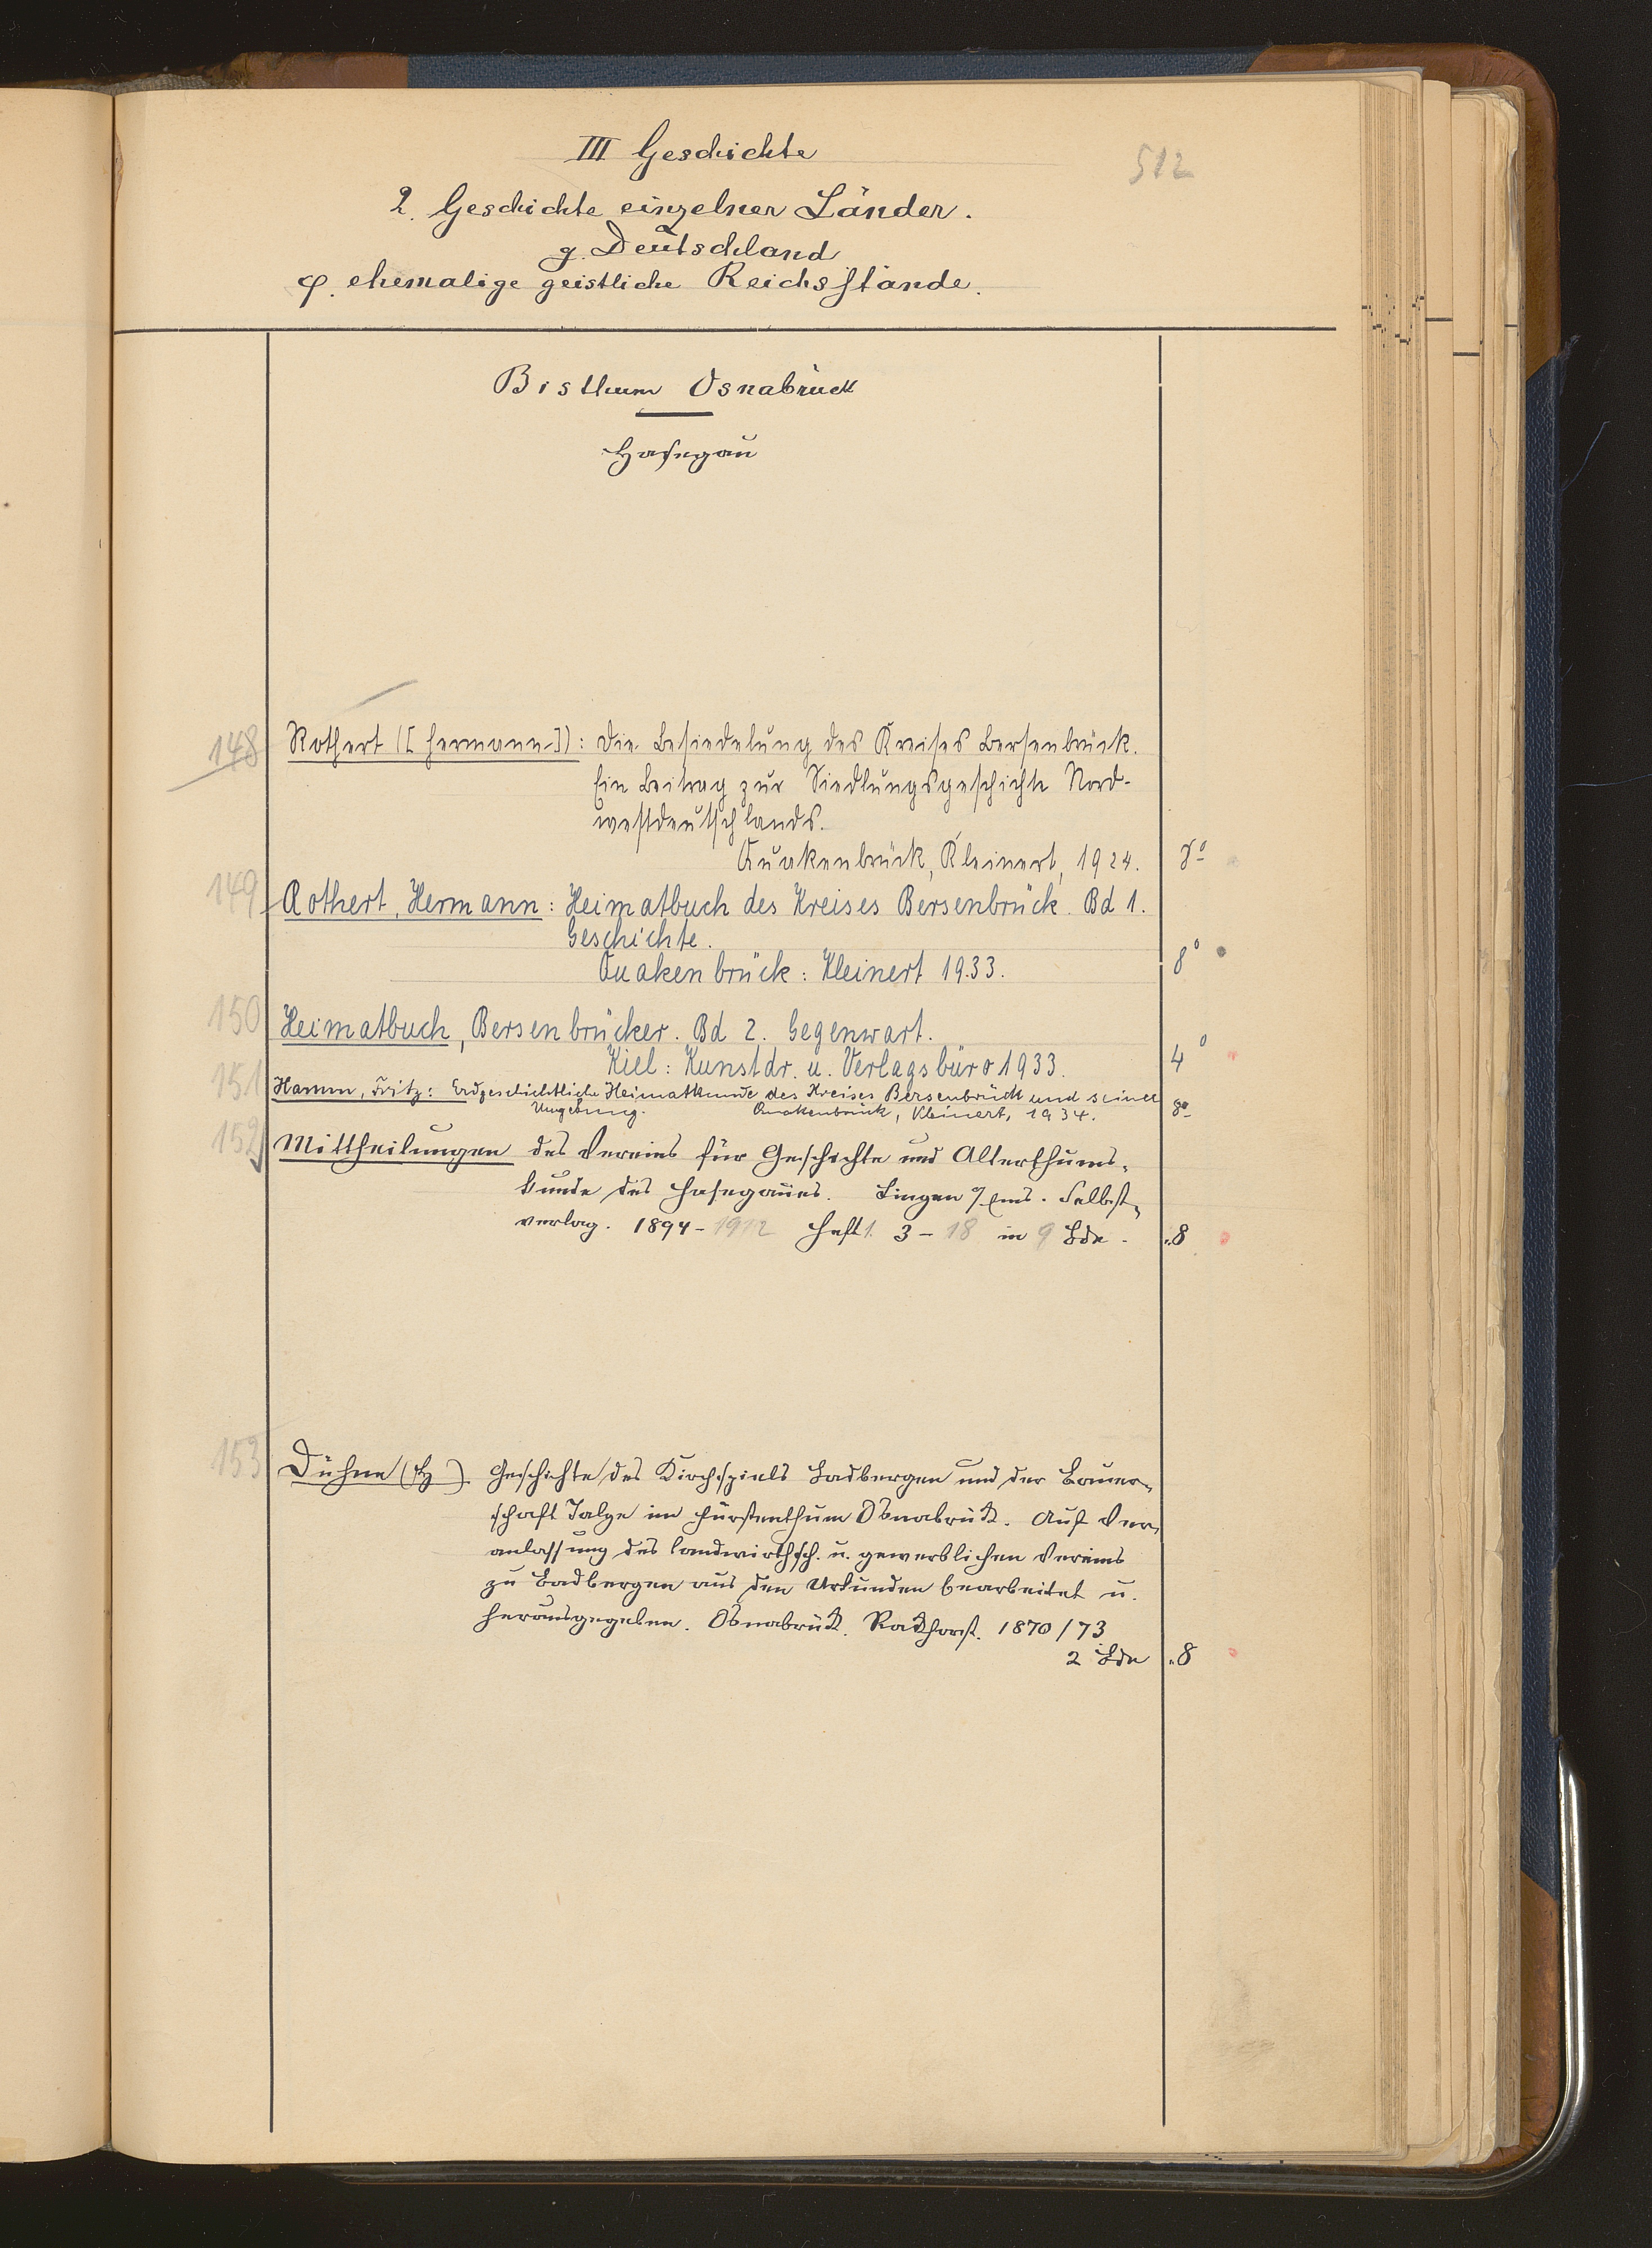 III Geschichte
512
2. Geschichte einzelner Länder.
g. Deutschland
φ. ehemalige geistliche Reichsstände.
Bisthum Osnabrück
Hasegau
148 Rothert ([Hermann]): Die Besiedelung des Kreises Bersenbrück.
Ein Beitrag zur Siedlungsgeschichte Nord-
westdeutschlands.
Quakenbrück, Kleinert, 1924. 8°
149 Rothert, Hermann: Heimatbuch des Kreises Bersenbrück. Bd 1.
Geschichte.
Quakenbrück: Kleinert 1933. 8°
150 Heimatbuch, Bersenbrücker. Bd 2. Gegenwart.
Kiel: Kunstdr. u. Verlagsbüro 1933. 4°
151 Hamm, Fritz: Erdgeschichtliche Heimatkunde des Kreises Bersenbrück und seiner
Umgebung. Quakenbrück, Kleinert, 1934. 8°
152 Mittheilungen des Vereins für Geschichte und Alterthums-
kunde des Hasegaues. Lingen a/Ems. Selbst-
verlag. 1894-1912 Heft 1. 3-18 in 9 Bde. 8
153 Dühne (H) Geschichte des Kirchspiels Badbergen und der Bauer-
schaft Talge im Fürstenthum Osnabrück. Auf Ver-
anlassung des landwirthsch. u. gewerblichen Vereins
zu Badbergen aus den Urkunden bearbeitet u.
herausgegeben. Osnabrück. Rackhorst. 1870/73
2 Bde 8